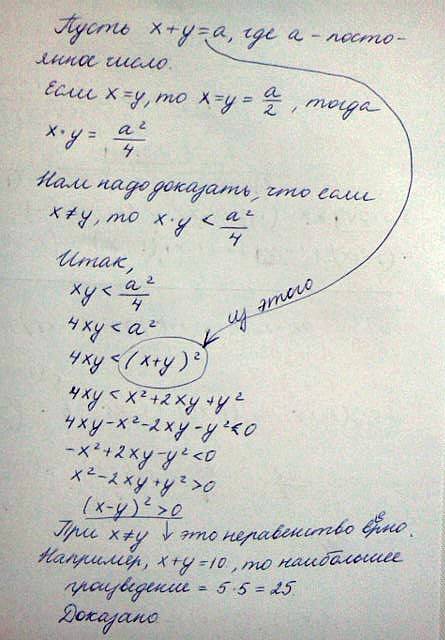 Пусть x+y=a, где a - посто-
янное число.
Если x=y, то x=y= a/2, тогда
x·y = a²/4
Нам надо доказать, что если
x≠y, то x·y < a²/4
Итак,
xy < a²/4
4xy < a²
из этого
4xy < (x+y)²
4xy < x²+2xy+y²
4xy-x²-2xy-y²<0
-x²+2xy-y²<0
x²-2xy+y²>0
(x-y)²>0
При x≠y ↓ это неравенство верно.
Например, x+y=10, то наибольшее
произведение = 5·5=25
Доказано